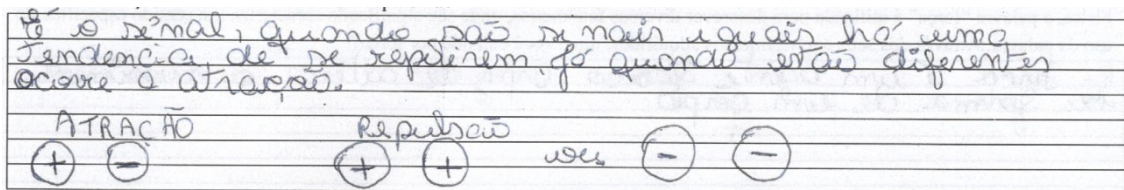 É o sinal, quando são sinais iguais há uma
tendencia de se repelirem já quando estão diferentes
ocorre a atração.
ATRAÇÃO Repulsão
+ - + + ou - -